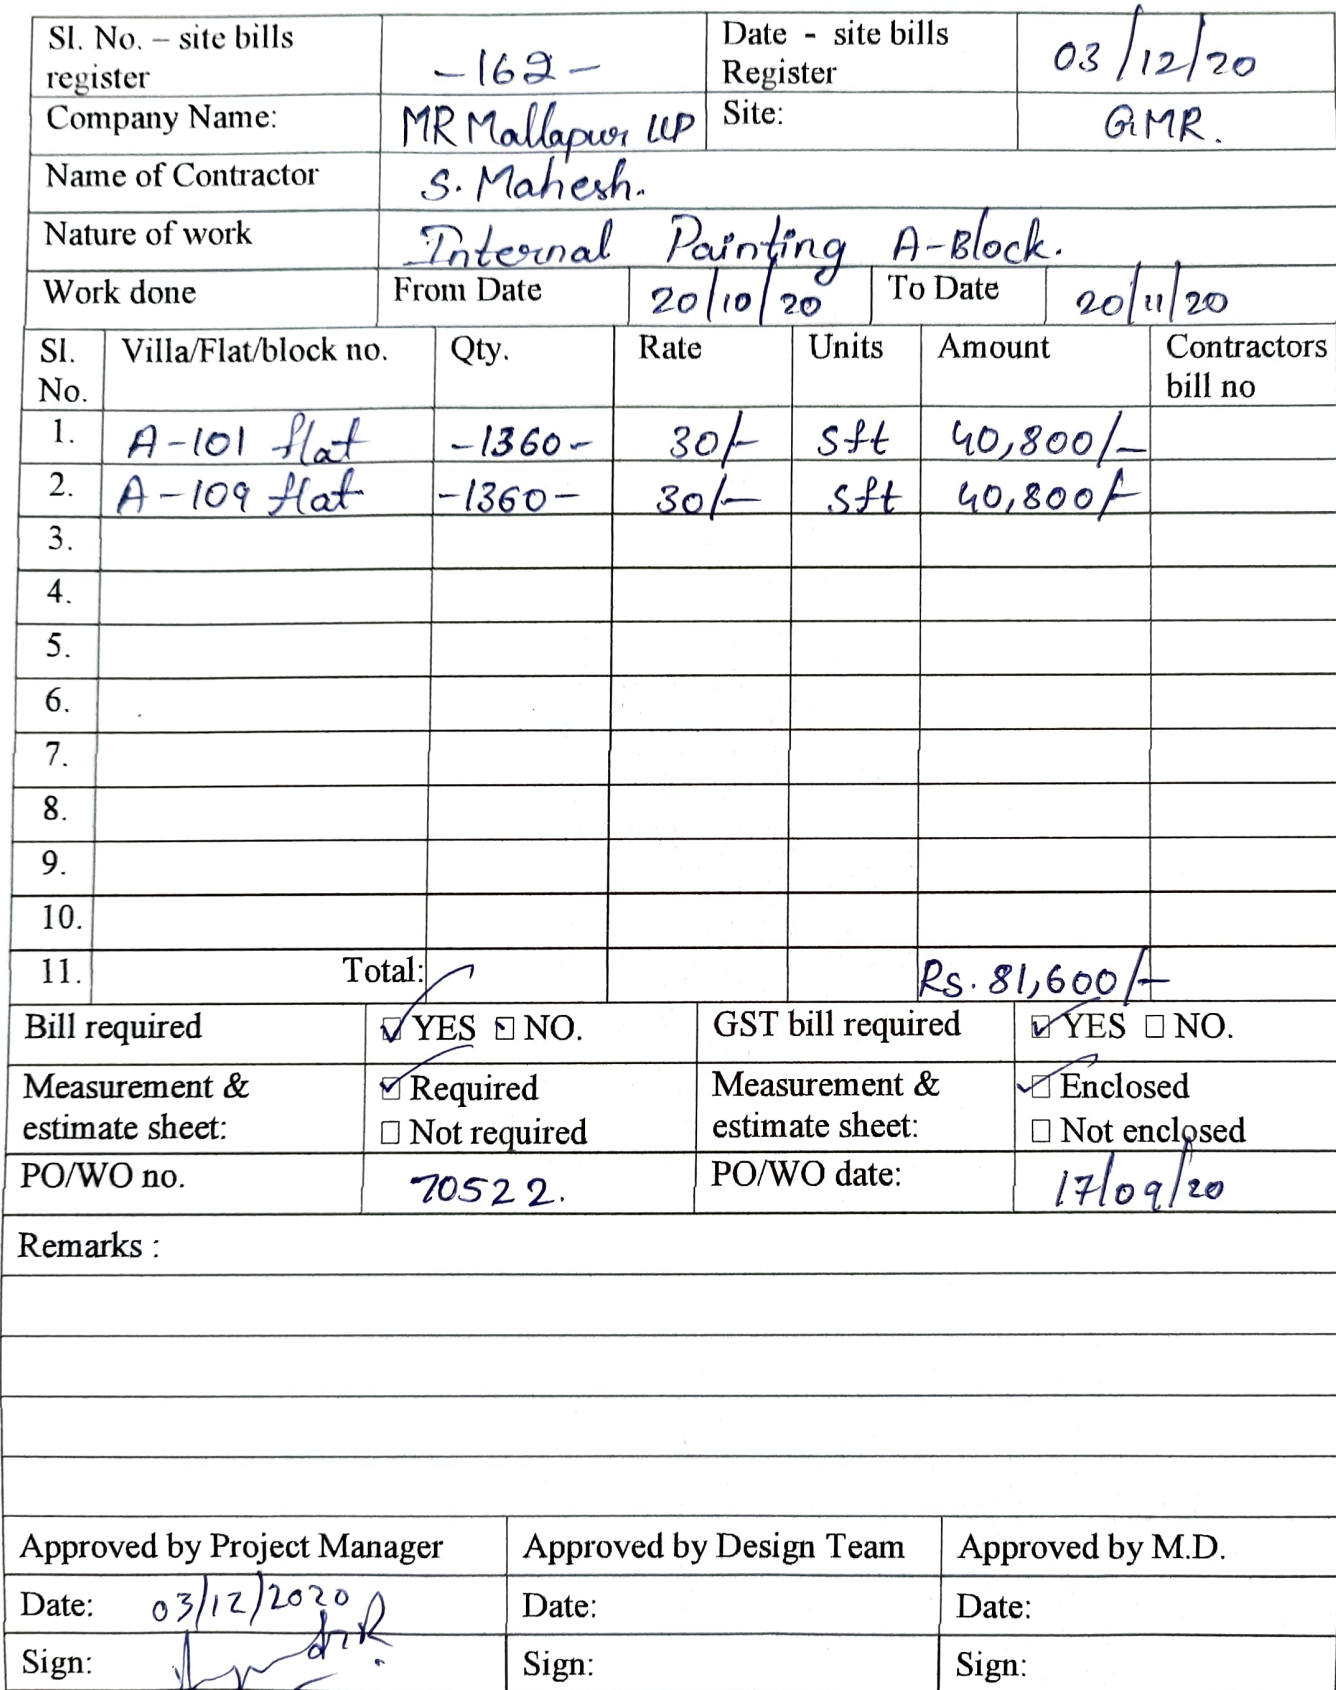 Sl. No. – site bills register -162- Date - site bills Register 03/12/20
Company Name: MR Mallapur LLP Site: GMR.
Name of Contractor S. Mahesh.
Nature of work Internal Painting A-Block.
Work done From Date 20/10/20 To Date 20/11/20
Sl. No. Villa/Flat/block no. Qty. Rate Units Amount Contractors bill no
1. A-101 flat -1360- 30/- Sft 40,800/-
2. A-109 flat -1360- 30/- Sft 40,800/-
3.
4.
5.
6.
7.
8.
9.
10.
11. Total: Rs. 81,600/-
Bill required ☑ YES ☐ NO. GST bill required ☑ YES ☐ NO.
Measurement & estimate sheet: ☑ Required ☐ Not required Measurement & estimate sheet: ☑ Enclosed ☐ Not enclosed
PO/WO no. 70522. PO/WO date: 17/09/20
Remarks :
Approved by Project Manager Approved by Design Team Approved by M.D.
Date: 03/12/2020 Date: Date:
Sign: Sign: Sign: